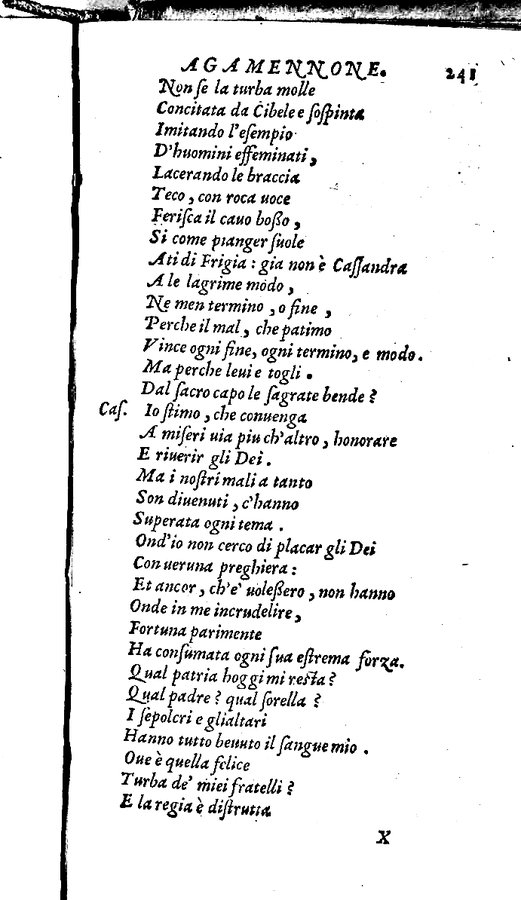 AGAMENNONE. 241
Non ſe la turba molle
Concitata da Cibele e ſoſpinta
Imitando l'eſempio
D'huomini effeminati,
Lacerando le braccia
Teco, con roca uoce
Feriſca il cauo boßo,
Si come pianger ſuole
Ati di Frigia: gia non è Caſſandra
A le lagrime modo,
Ne men termino, o fine,
Perche il mal, che patimo
Vince ogni fine, ogni termino, e modo.
Ma perche leui e togli.
Dal ſacro capo le ſagrate bende?
Caſ. Io ſtimo, che conuenga
A miſeri uia piu ch'altro, honorare
E riuerir gli Dei.
Ma i noſtri mali a tanto
Son diuenuti, c'hanno
Superata ogni tema.
Ond'io non cerco di placar gli Dei
Con ueruna preghiera:
Et ancor, ch'e' uoleßero, non hanno
Onde in me incrudelire,
Fortuna parimente
Ha conſumata ogni ſua eſtrema forza.
Qual patria hoggi mi reſta?
Qual padre? qual ſorella?
I ſepolcri e glialtari
Hanno tutto beuuto il ſangue mio.
Oue è quella felice
Turba de' miei fratelli?
E la regia è diſtrutta
X